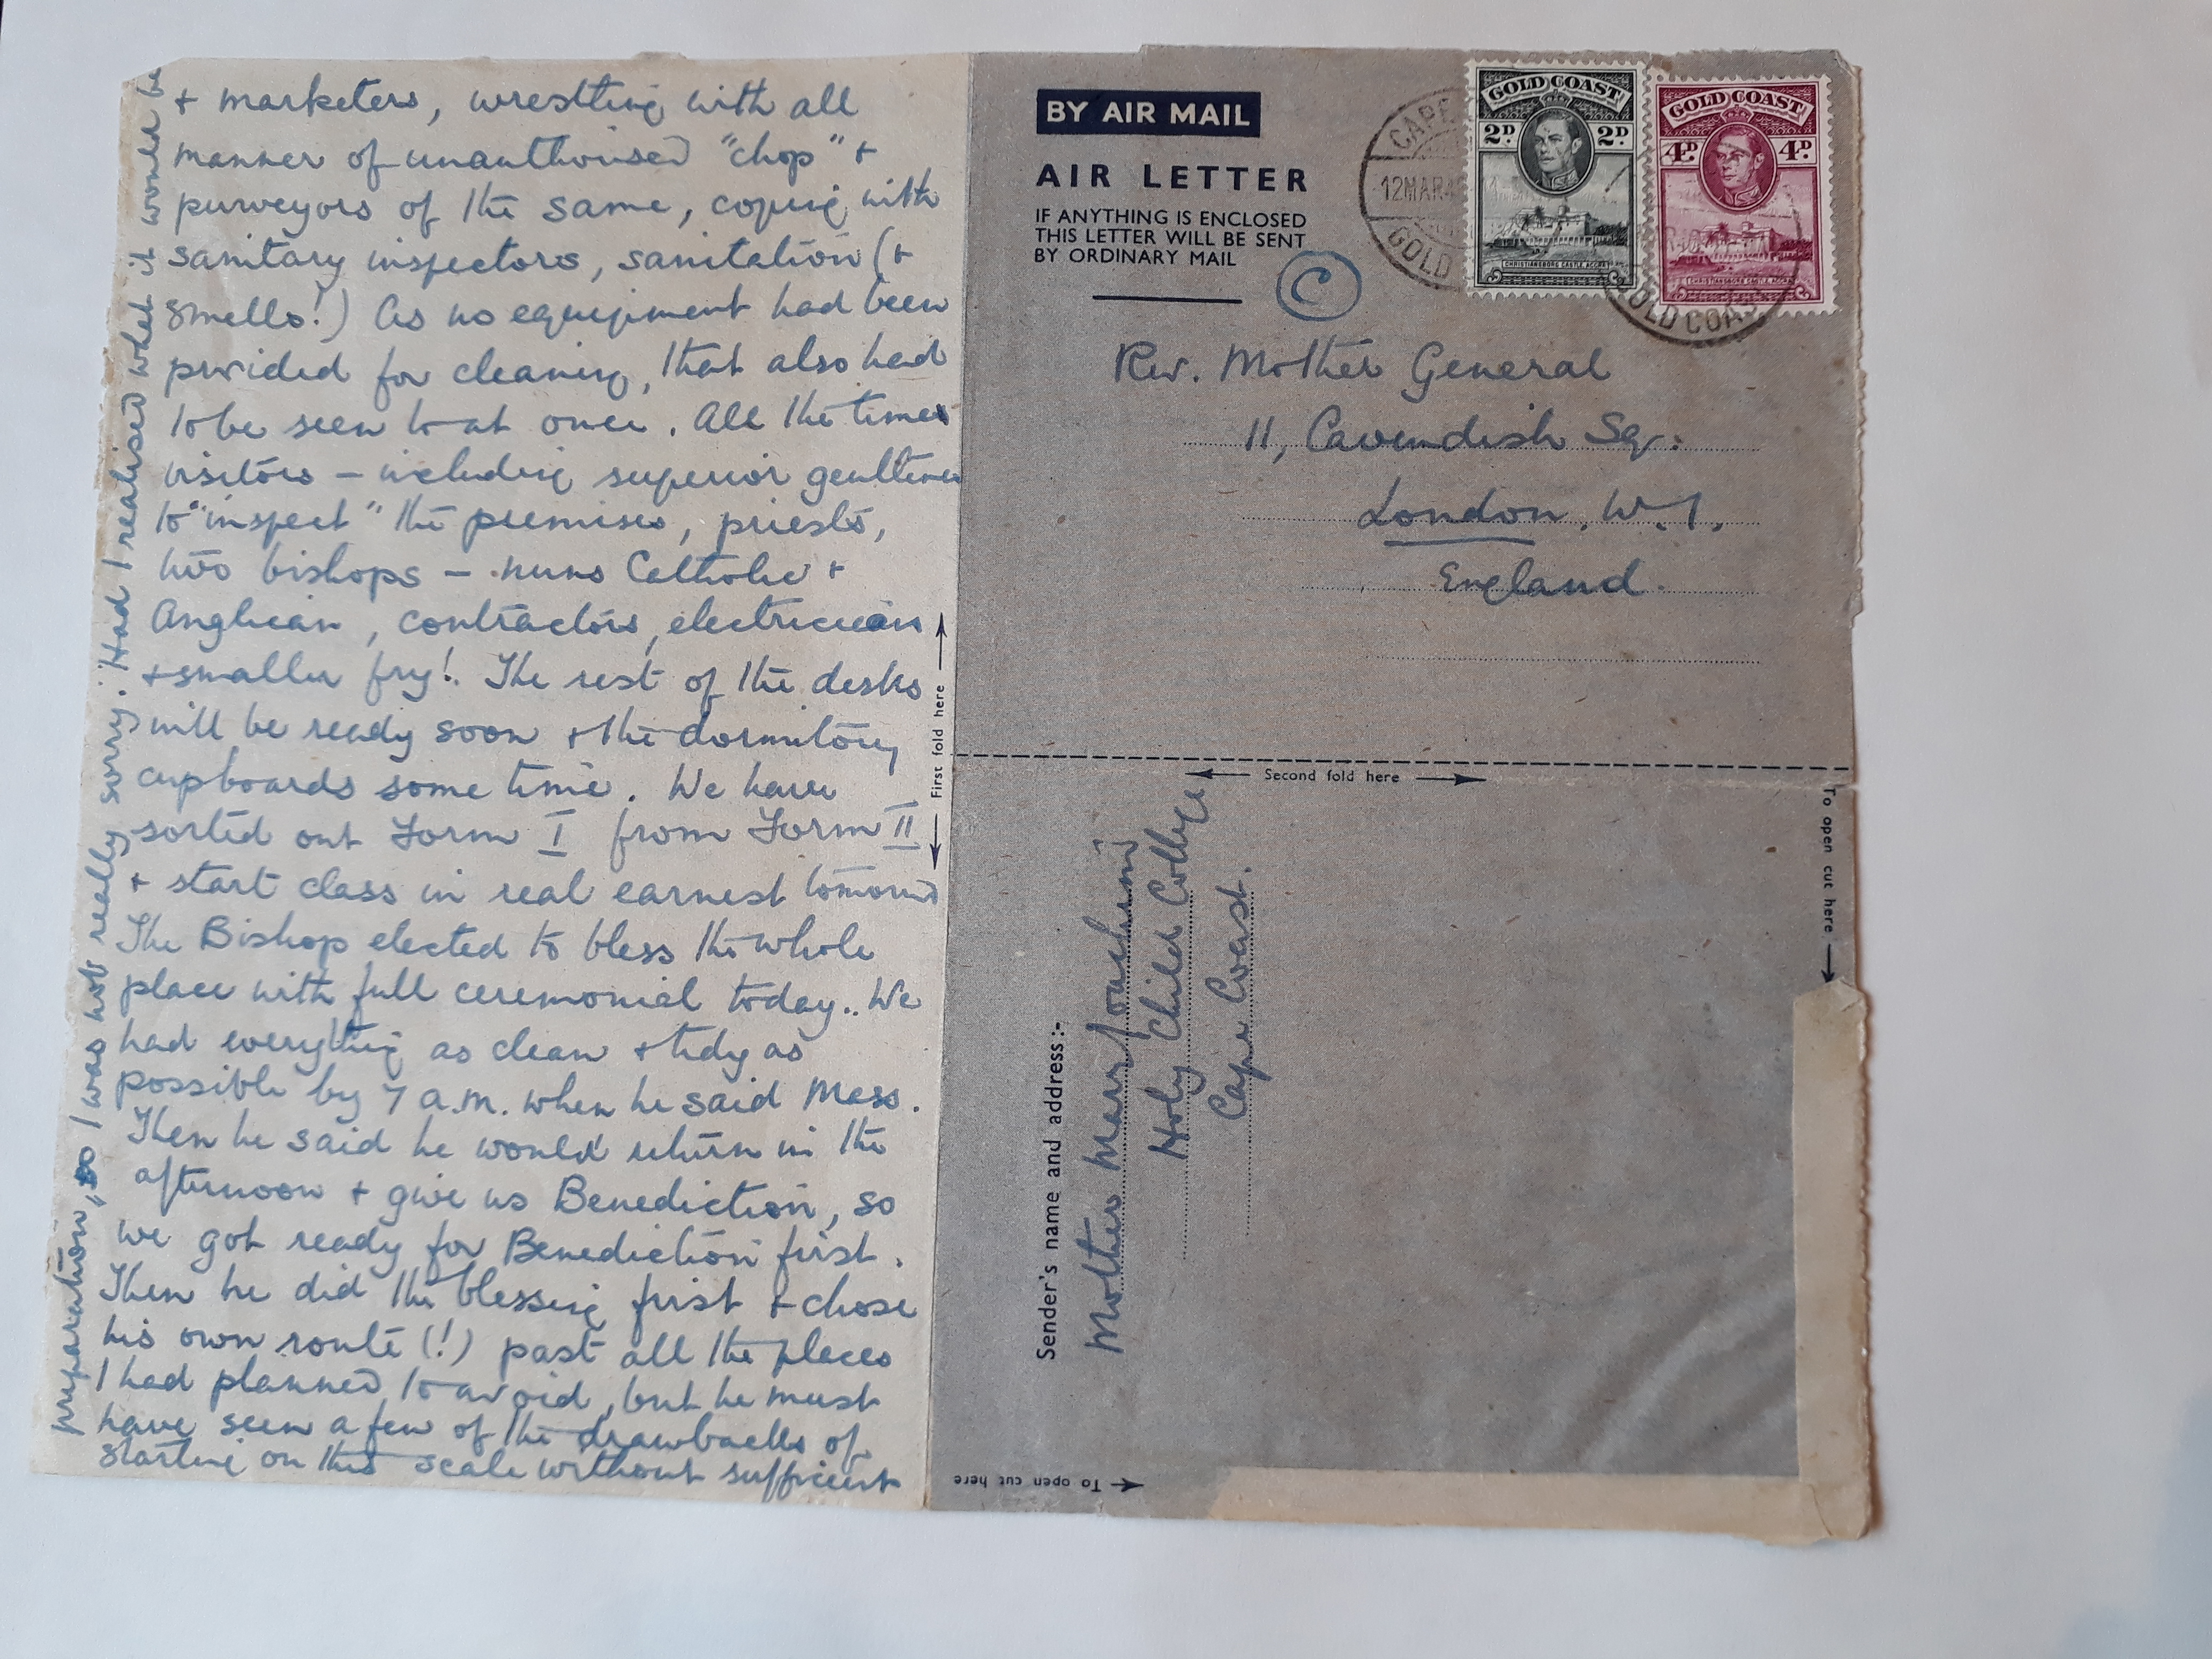 + marketers, wrestling with all
manner of unauthorised "chop" +
purveyors of the same, coping with
sanitary inspectors, sanitation (+
smells!) As no equipment had been
provided for cleaning, that also had
to be seen to at once. All the times
visitors – including superior gentlemen
to "inspect" the premises, priests,
two bishops – nuns Catholic +
Anglican, contractors, electricians
+ smaller fry! The rest of the desks
will be ready soon + the dormitory
cupboards some time. We have
sorted out Form I from Form II
+ start class in real earnest tomorrow
The Bishop elected to bless the whole
place with full ceremonial today.. We
had everything as clean + tidy as
possible by 7 a.m. when he said Mass.
Then he said he would return in the
afternoon + give us Benediction, so
we got ready for Benediction first.
Then he did the blessing first + chose
his own route (!) past all the places
I had planned to avoid, but he must
have seen a few of the drawbacks of
starting on this scale without sufficient
preparation, so I was not really sorry. Had I realised what it would be
First fold here
BY AIR MAIL
AIR LETTER
IF ANYTHING IS ENCLOSED
THIS LETTER WILL BE SENT
BY ORDINARY MAIL
C
CAPE
12MAR4
GOLD
GOLD COAST
2D 2D
CHRISTIANSBORG CASTLE, ACCRA
GOLD COAST
4D 4D
CHRISTIANSBORG CASTLE, ACCRA
GOLD COA
Rev. Mother General
11, Cavendish Sq.
London, W.1.
England.
Second fold here
To open cut here
Sender's name and address:-
Mother Mary Joachim
Holy Child College
Cape Coast.
To open cut here